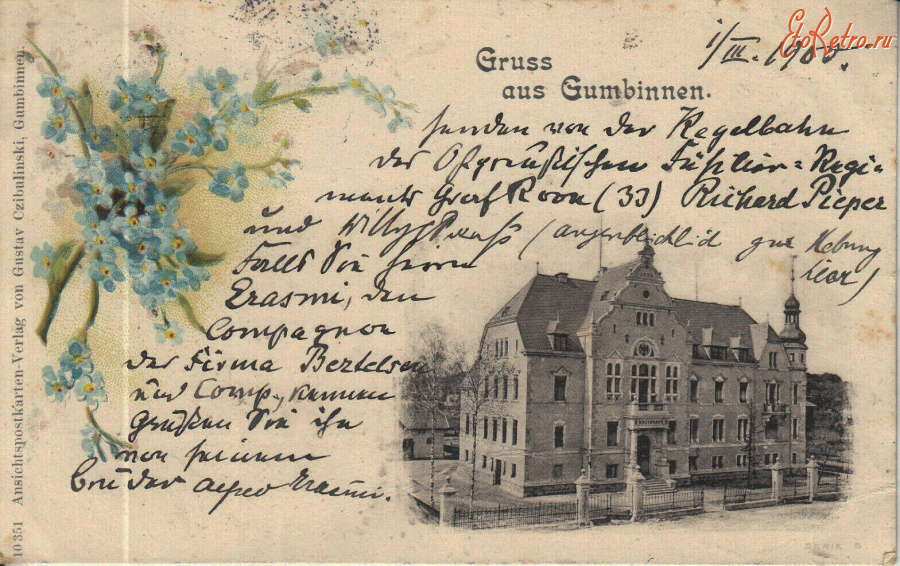 EtoRetro.ru
1/III. 1900.
Gruss
aus Gumbinnen.
senden von der Kegelbahn
des Ostpreußischen Füsilier=Regi=
ments Graf Roon (33) Richard Pieper
und Willy (augenblicklich zur Uebung
hier)
Falls Sie Herrn
Erasmi, den
Compagnon
der Firma Bertelsen
und Comp., kennen
grüßen Sie ihn
von seinem
Bruder Alfred Erasmi.
10351 Ansichtspostkarten-Verlag von Gustav Czibulinski, Gumbinnen.
SERIE